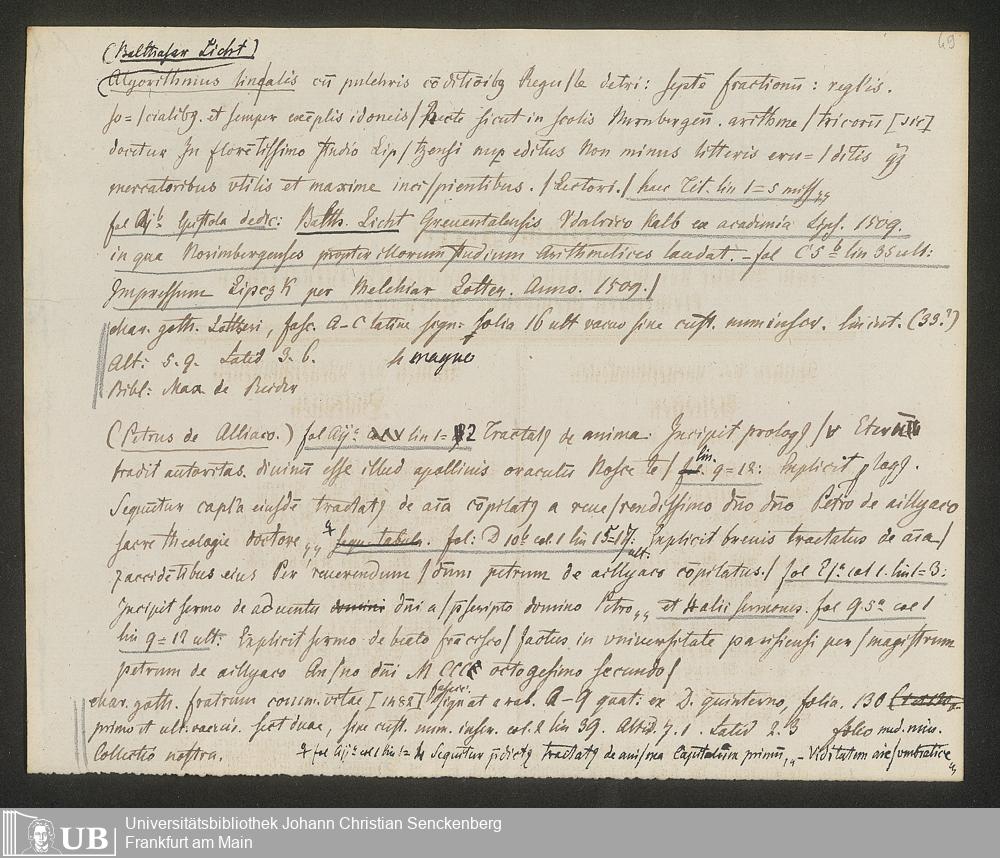 49
(Balthasar Licht)
(Algorithmus linealis cū pulchris cōditiōibꝫ Regu/le detri: septē fractionū: reglis.
so=/cialibꝫ. et semper exēplis idoneis/ Recte sicut in scolis Nurnbergeñ. arithme/tricorū [sic]
docetur In florētissimo studio Lip/tzensi nup editus Non minus litteris eru=/ditis ꝙꝫ
mercatoribus vtilis et maxime inci/pientibus. /Lectori./ haec Tit. lin 1=5 miss„
fol Aijb Epistola dedic: Balth. Licht Greuentalensis Vdalrico Kalb ex academia Lips. 1509.
in qua Norimbergenses propter illorum studium Arithmetices laudat. – fol C5b lin 35 ult:
Impressum Lipczk per Melchiar Lotter. Anno. 1509./
char. goth. Lotteri, fasc. A–C latine sign: folia 16 ult vacuo sine cust. num inscr. lin int. (33?)
Alt: 5. 9. Latid 3. 6. 4 magno
Bibl: Max de
(Petrus de Alliaco.) fol Aija lin 1= 2 Tractatꝫ de anima. Incipit prologꝫ /
tradit autoritas. diuinū esse illud apollinis oraculū Nosce te/ lin. 9=12: Explicit plogꝫ.
Sequūtur capl'a eiusdē tractatꝫ de aīa cōpilatꝫ a reue/rendissimo dño dño Petro de aillyaco
sacre theologie doctore„ sequ. tabula. fol: D 10a col 1 lin 15=17: ult. Explicit breuis tractatus de aīa/
ꝑaccidētibus eius Per reuerendum /dūm petrum de aillyaco cōpilatus./ fol E1a col 1. lin 1=3:
Incipit sermo de aduentu domini dñi a/ p̄scripto domino Petro„ et alii sermones. fol q. 5a col 1
lin 9=12 ult: Explicit sermo de beato frācisco/ factus in vniuersitate parisiensi per /magistrum
petrum de aillyaco An/no dñi M CCCC octogesimo secundo/
char. goth. fratrum comm. vitae [1482] signat arab. A–q quat: ex D. quinterno, folia. 130
primo et ult. vacuis. sect duae, sine cust. num. inscr. col. 2 lin 39. Altid. 7. 1. Latid 2. 3 folio med. min.
Collectio nostra. fol Aija col 1 lin Sequūtur p̄dictꝫ tractatꝫ de ani/ma Capitulum primū„ – vmbratice„
Universitätsbibliothek Johann Christian Senckenberg
Frankfurt am Main
UB